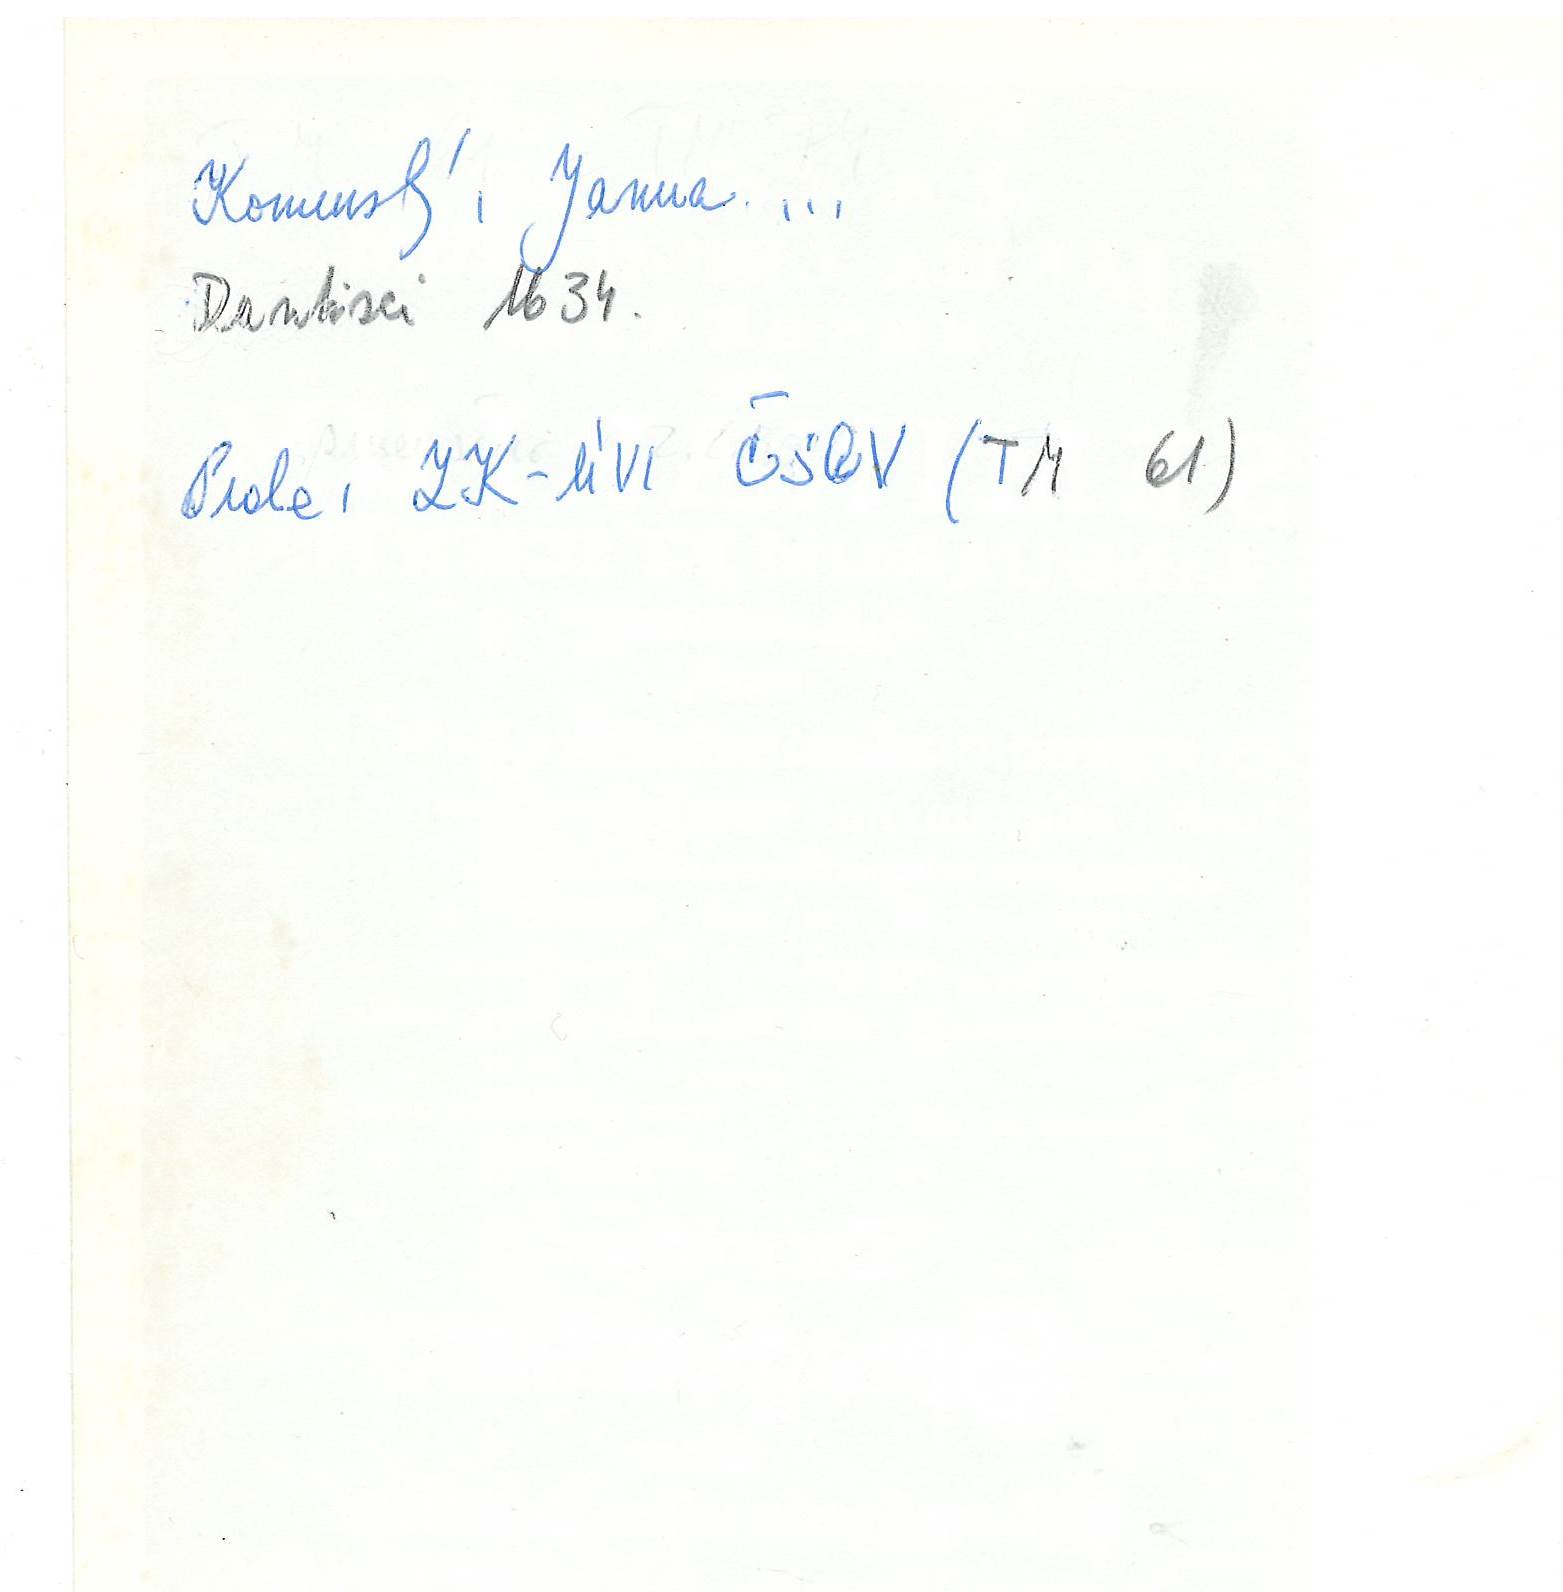 Komenský, Janua....
Dantisci 1634.
Praha, ZK-ÚVI ČSAV (TM 61)